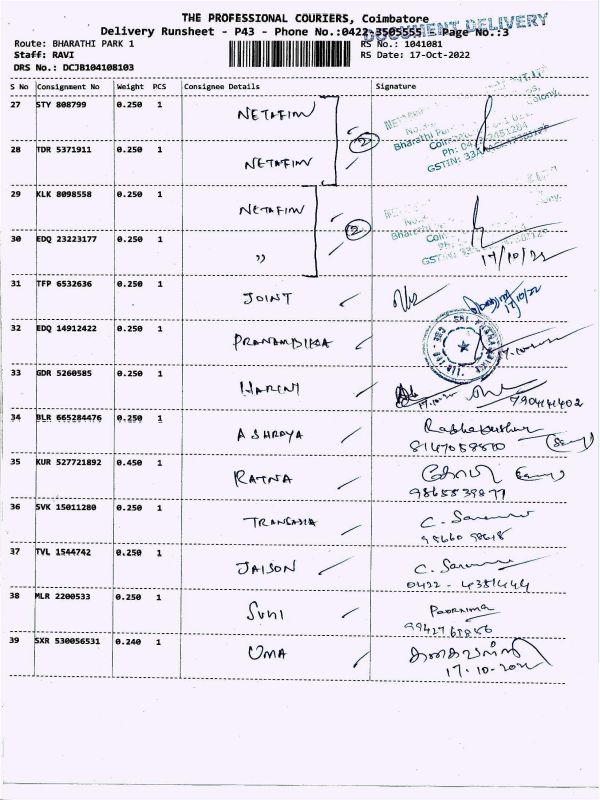 THE PROFESSIONAL COURIERS, Coimbatore
Delivery Runsheet - P43 - Phone No.:0422-3505555 - Page No.:3
DOCUMENT DELIVERY
Route: BHARATHI PARK 1 RS No.: 1041081
Staff: RAVI RS Date: 17-Oct-2022
DRS No.: DCJB104108103
S No Consignment No Weight PCS Consignee Details Signature
27 STY 808799 0.250 1 NETAFIM
2
28 TDR 5371911 0.250 1 NETAFIM
29 KLK 8098558 0.250 1 NETAFIM
2
30 EDQ 23223177 0.250 1 ,, 17/10/22
31 TFP 6532636 0.250 1 JOINT 17/10/22
32 EDQ 14912422 0.250 1 PRANAMBIKA
33 GDR 5260585 0.250 1 HARINI
34 BLR 665284476 0.250 1 ASHRAYA
8147058870
35 KUR 527721892 0.450 1 RATNA
9865539877
36 SVK 15011280 0.250 1
37 TVL 1544742 0.250 1 JAISON
0422 - 4381444
38 MLR 2200533 0.250 1 SUNI Poornima
39 SXR 530056531 0.240 1 UMA
17.10.2022